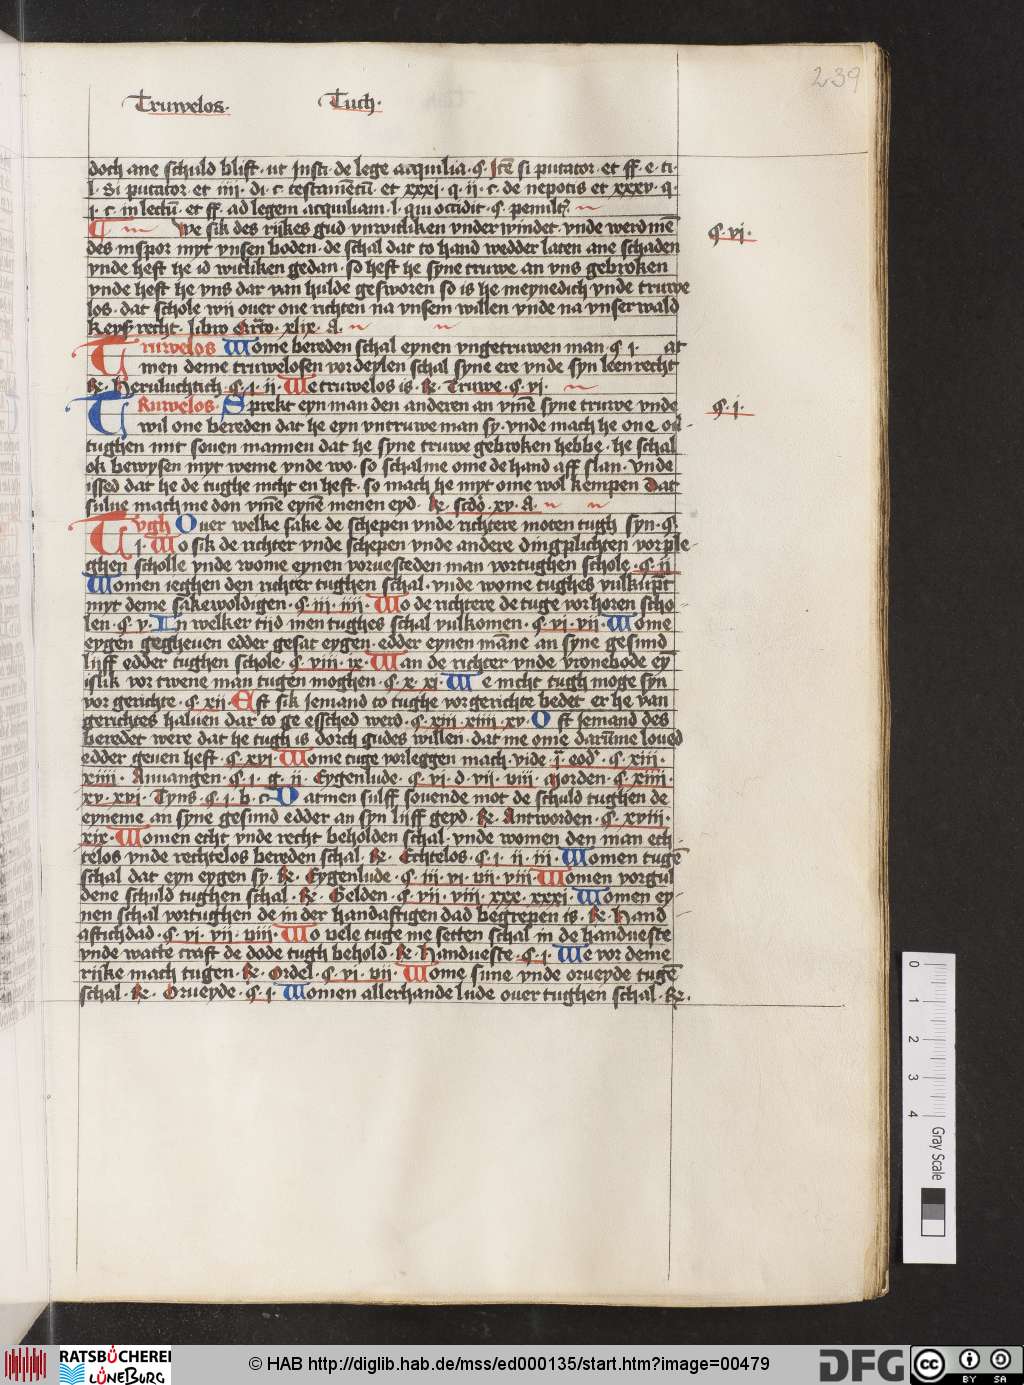 239
Truwelos. Tuch.
doch ane schuld blift. ut Insti. de lege acquilia. §. Itē si putator. et ff. e. ti.
l. Si putator et iiii. di. c. testamētū et xxxi. q. ii. c. de nepotis et xxxv. q.
i. c. in lectū. et ff. ad legem acquiliam. l. qui occidit. §. penult.
We sik des rijkes gud vnwitliken vnder windet. vnde werd mē §. vi.
des inspor myt vnsen boden. de schal dat to hand wedder laten ane schaden
vnde heft he id witliken gedan. so heft he syne truwe an vns gebroken
vnde heft he vns dar van hulde gesworen so is he meynedich vnde truwe
los. dat schole wij ouer one richten na vnsem willen vnde na vnser wald
keyserrecht. libro xlix. A.
Truwelos Wome bereden schal eynen vngetruwen man. §. i. at
men deme truwelosen vordeylen schal syne ere vnde syn leenrecht
Re. Herulüchtich §. i. ii. We truwelos is. Re. Truwe. §. vi.
TRuwelos. Sprekt eyn man den anderen an vmē syne truwe vnde §. i.
wil one bereden dat he eyn vntruwe man sy. vnde mach he one ou
tughen mit souen mannen dat he syne truwe gebroken hebbe. he schal
ok bewysen myt weme vnde wo. so schal me ome de hand aff slan. vnde
issed dat he de tughe nicht en heft. so mach he myt ome wol kempen Dat
sulue mach me don vmē eynē menen eyd. Re. scdo. xv. A.
Tvgh Ouer welke sake de schepen vnde richtere moten tugh syn. §.
i. Wo sik de richter vnde schepen vnde andere dingplichten vorple
ghen scholle vnde wome eynen vorvesteden man vortughen schole. §. ii
Women ieghen den richter tughen schal. vnde wome tughes vulkūpt
myt deme sakewoldigen. §. iii. iiii. Wo de richtere de tuge vorhoren scho
len. §. v. In welker tijd men tughes schal vulkomen. §. vi. vii. Wome
eygen gegheuen edder gesat eygen. edder eynen māne an syne gesund
lijff edder tughen schole. §. viii. ix. Wan de richter vnde vronebode ey
islik vor twene man tugen moghen. §. x. xi. We nicht tugh moge syn
vor gerichte. §. xii. Eft sik Jemand to tughe vor gerichte bedet er he van
gerichtes haluen dar to ge esschet werd. §. xiii. xiiii. xv. Oft Jemand des
beredet were dat he tugh is dorch gudes willen. dat me ome darūme loued
edder geuen heft. §. xvi. Wome tuge vorleggen mach. vide i. eod. §. xiii.
xiiii. Anuangen. §. i. g. ii. Eygenlude. §. vi. d. vii. viii. Morden. §. xiiii.
xv. xvi. Tyns. §. i. b. c. Vatmen sulff souende mot de schuld tughen de
eyneme an syne gesund edder an syn lijff geyd. Re. Antworden. §. xviii.
xix. Women echt vnde recht beholden schal. vnde women den man ech
telos vnde rechtelos bereden schal. Re. Echtelos. §. i. ii. iii. Women tugē
schal dat eyn eygen sy. Re. Eygenlude. §. iii. vi. vii. viii. Women vorgul
dene schuld tughen schal. Re. Gelden. §. vii. viii. xxx. xxxi. Women ey
nen schal vortughen de in der handaftigen dad begrepen is. Re. Hand
aftichdad. §. vi. vii. viii. Wo vele tuge me setten schal in de handueste
vnde watte craft de dode tugh behold. Re. Handueste. §. i. We vor deme
rijke mach tugen. Re. Ordel. §. vi. vii. Wome sune vnde orueyde tugē
schal. Re. Orueyde. §. i. Women allerhande lude ouer tughen schal. Re.
0 1 2 3 4 Gray Scale
RATSBÜCHEREI LÜNEBURG
© HAB http://diglib.hab.de/mss/ed000135/start.htm?image=00479
DFG cc BY SA